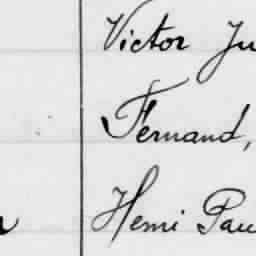 Victor Ju
Fernand,
Henri Pau